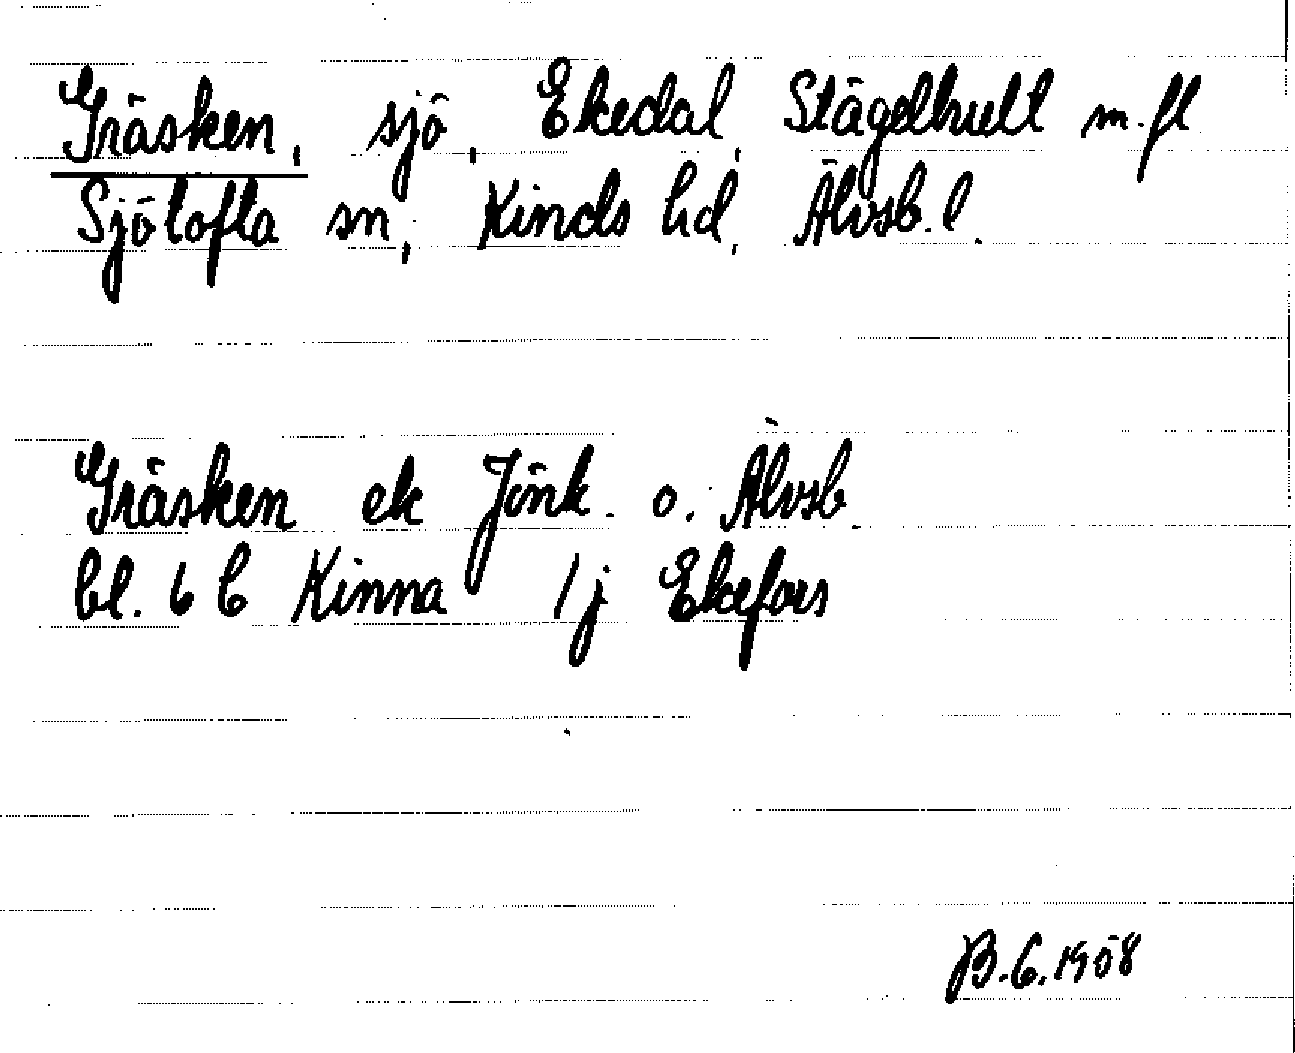 Gräsken, sjö, Ekedal, Stägelhult m.fl
Sjötofta sn, Kinds hd, Älvsb.l.
Gräsken ek Jönk. o. Älvsb.
bl. 6 b Kinna 1j Ekefors
B.G.1958